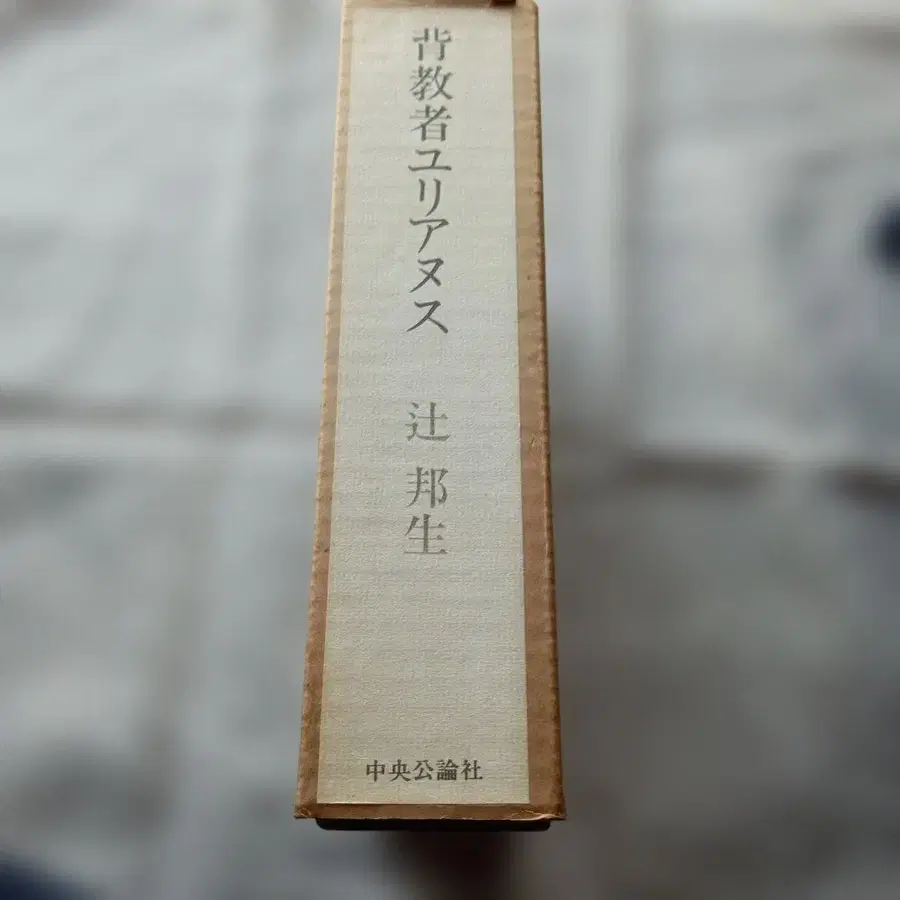 背教者ユリアヌス
辻 邦生
中央公論社